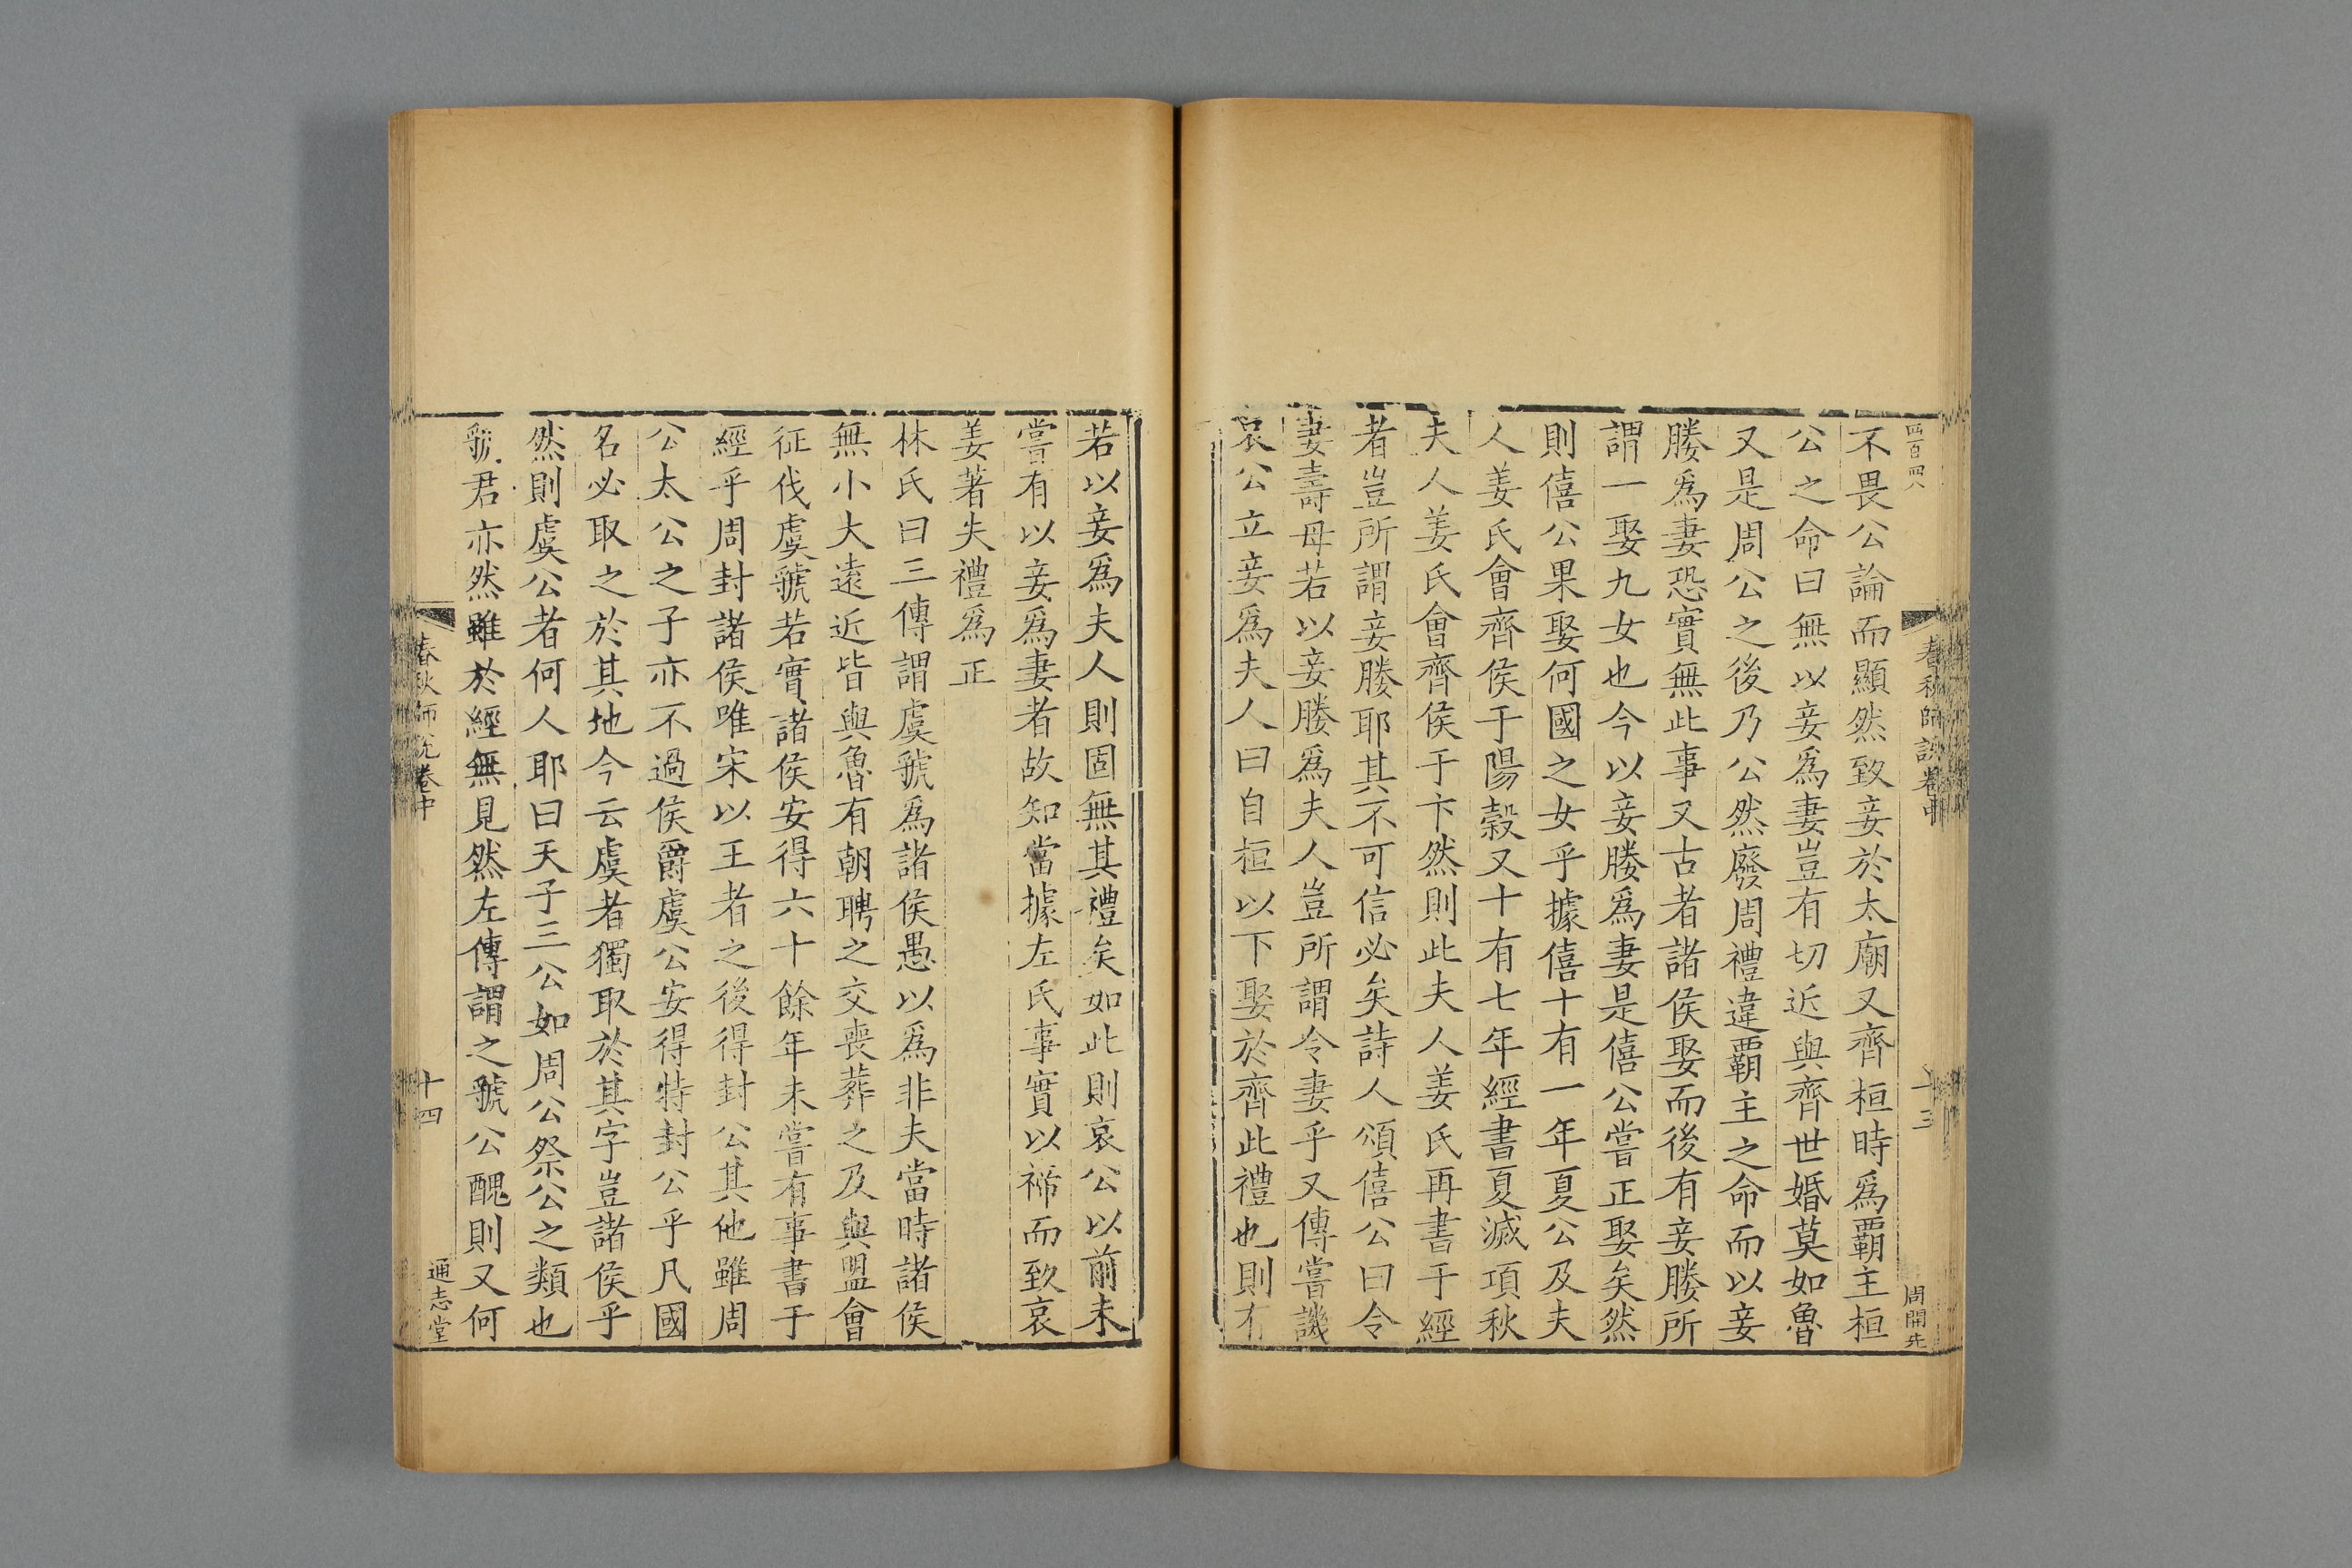 四百四八
春秋師說卷中
十三
周開先
不畏公論而顯然致妾於太廟又齊桓時爲覇主桓
公之命曰無以妾爲妻豈有切近與齊世婚莫如魯
又是周公之後乃公然廢周禮違覇主之命而以妾
媵爲妻恐實無此事又古者諸侯娶而後有妾媵所
謂一娶九女也今以妾媵爲妻是僖公嘗正娶矣然
則僖公果娶何國之女乎據僖十有一年夏公及夫
人姜氏會齊侯于陽榖又十有七年經書夏滅項秋
夫人姜氏會齊侯于卞然則此夫人姜氏再書于經
者豈所謂妾媵耶其不可信必矣詩人頌僖公曰令
妻壽母若以妾媵爲夫人豈所謂令妻乎又傳嘗譏
哀公立妾爲夫人曰自桓以下娶於齊此禮也則有
若以妾爲夫人則固無其禮矣如此則哀公以前未
嘗有以妾爲妻者故知當據左氏事實以禘而致哀
姜著失禮爲正
林氏曰三傳謂虞虢爲諸侯愚以爲非夫當時諸侯
無小大遠近皆與魯有朝聘之交喪葬之及與盟會
征伐虞虢若實諸侯安得六十餘年未嘗有事書于
經乎周封諸侯唯宋以王者之後得封公其他雖周
公太公之子亦不過侯爵虞公安得特封公乎凡國
名必取之於其地今云虞者獨取於其字豈諸侯乎
然則虞公者何人耶曰天子三公如周公祭公之類也
虢君亦然雖於經無見然左傳謂之虢公醜則又何
春秋師說卷中
十四
通志堂